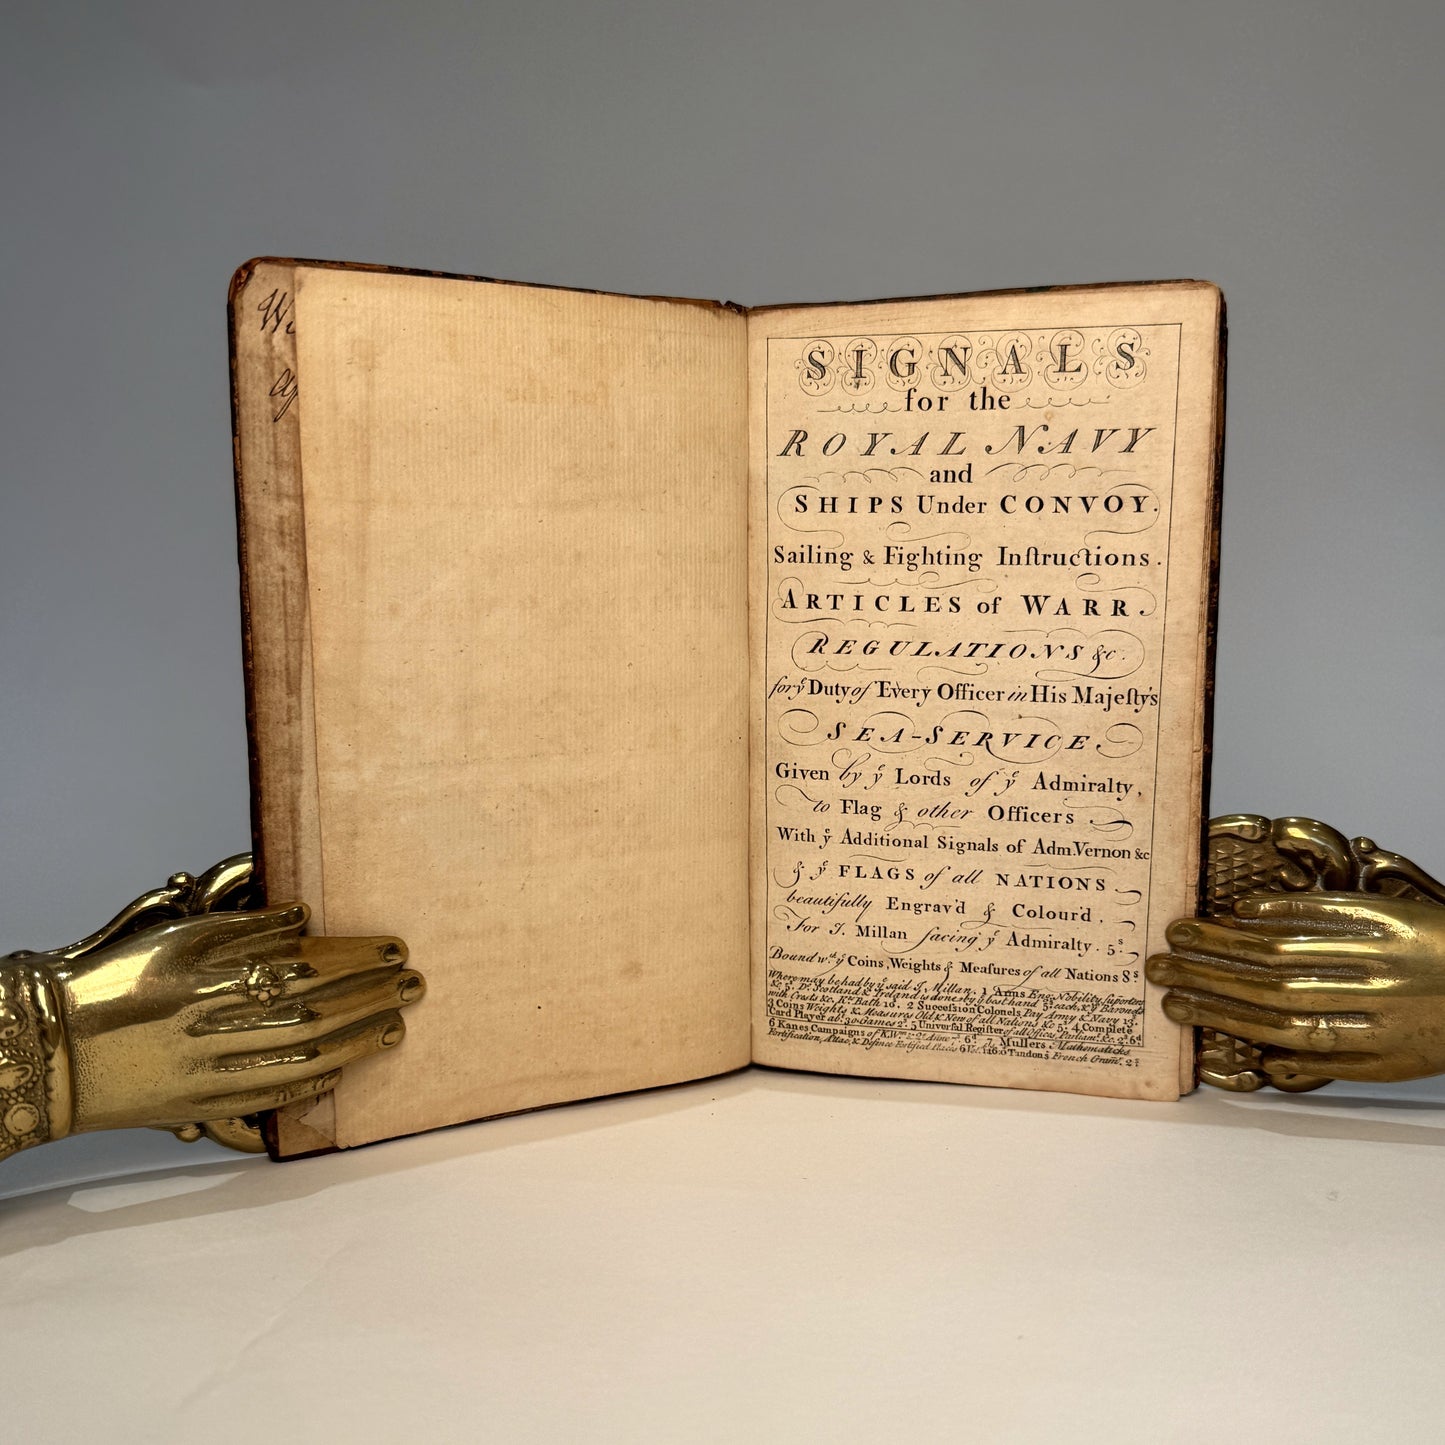 SIGNALS
for the
ROYAL NAVY
and
SHIPS Under CONVOY.
Sailing & Fighting Inſtructions.
ARTICLES of WARR.
REGULATIONS &c.
for yͤ Duty of Every Officer in His Majeſty's
SEA-SERVICE.
Given by yͤ Lords of yͤ Admiralty,
to Flag & other Officers
With yͤ Additional Signals of Adm. Vernon &c
& yͤ FLAGS of all NATIONS
beautifully Engrav'd & Colour'd.
For J. Millan facing yͤ Admiralty. 5ˢ.
Bound wᵗʰ yͤ Coins, Weights & Meaſures of all Nations 8ˢ
Where may be had by yͤ said J. Millan. 1 Arms Eng. Nobility, Supporters
&c 5ˢ. Dº. Scotland & Ireland is done by yͤ best hand 5ˢ. each, & yͤ Baronets
with Crests &c. Kᵗˢ Bath 10. 2 Succeſsion Colonels, Pay Army & Navy 13ˢ.
3 Coins Weights & Measures Old & New of all Nations &c 5ˢ. 4 Complete
Card Player ab. 30 Games 2ˢ. 5 Univerſal Regiſter of all Offices, Parliamᵗ. &c. 2ˢ. 6ᵈ
6 Kanes Campaigns of K. Wᵐ & Qⁿ Anne 6ᵈ 7. Mullers Mathematicks
Fortification, Attac, & Defence Fortified Places 6 Vol. Tandons French Gramʳ. 2ˢ.